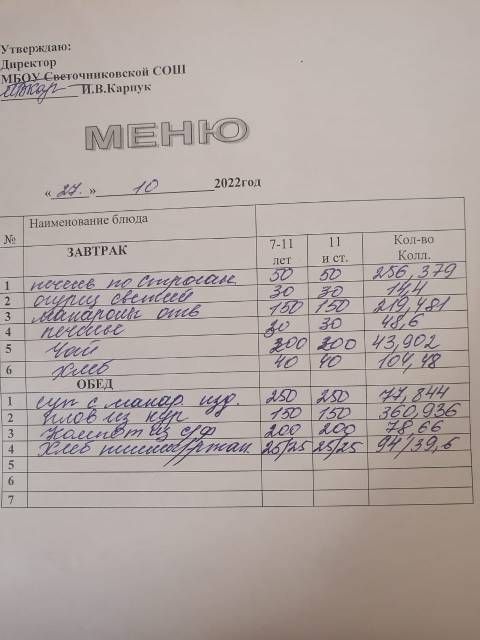 Утверждаю:
Директор
МБОУ Светочниковской СОШ
И.В.Карпук
МЕНЮ
« 27. » 10 2022год
№ Наименование блюда
ЗАВТРАК 7-11 лет 11 и ст. Кол-во Колл.
1 печень по строган. 50 50 256,379
2 огурец свежий 30 30 14,4
3 макароны отв 150 150 219,481
4 печенье 30 30 48,6
5 Чай 200 200 43,902
6 Хлеб 40 40 104,48
ОБЕД
1 суп с макар. изд. 250 250 77,844
2 плов из кур 150 150 360,936
3 Компот из с/ф 200 200 78,66
4 Хлеб пшен/ржан. 25/25 25/25 94/39,6
5
6
7